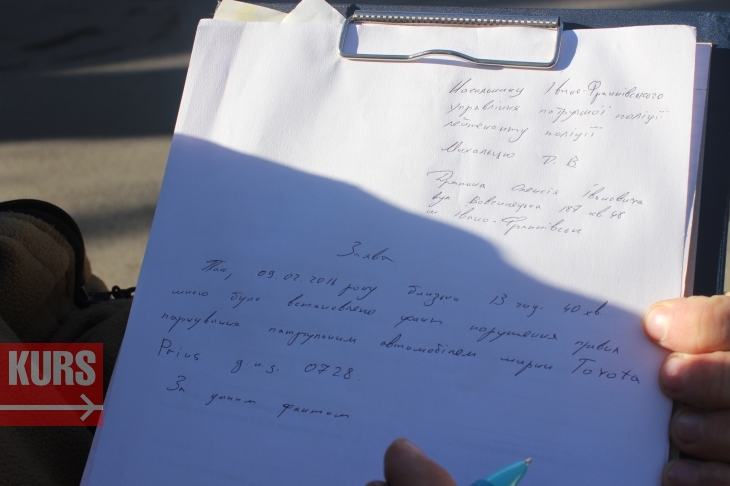 Начальнику Івано-Франківського
управління патрульної поліції
лейтенанту поліції
Михальцю П. В
Олексія Івановича
вул Вовчинецька 187 кв 48
м Івано-Франківськ
Заява
09.02.2016 року близько 13 год. 40 хв
мною було встановлено факт порушення правил
паркування патрульним автомобілем марки Toyota
Prius д.н.з. 0728.
За даним фактом
KURS